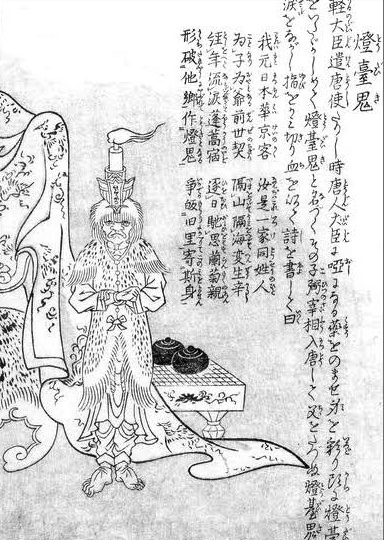 燈臺鬼
軽大臣遣唐使たりし時唐人大臣に唖になる薬をのませ身を彩り頭に燈臺
をいたゞかしめて燈臺鬼と名づくその子弼宰相入唐して父をたづぬ燈臺鬼
涙をながし指をかみ切血を以て詩を書して曰
我元日本華京客　汝是一家同姓人
為子為爺前世契　隔山隔海変生辛
経年流涙蓬蒿宿　逐日馳思蘭菊親
形破他郷作燈鬼　争皈旧里寄斯身